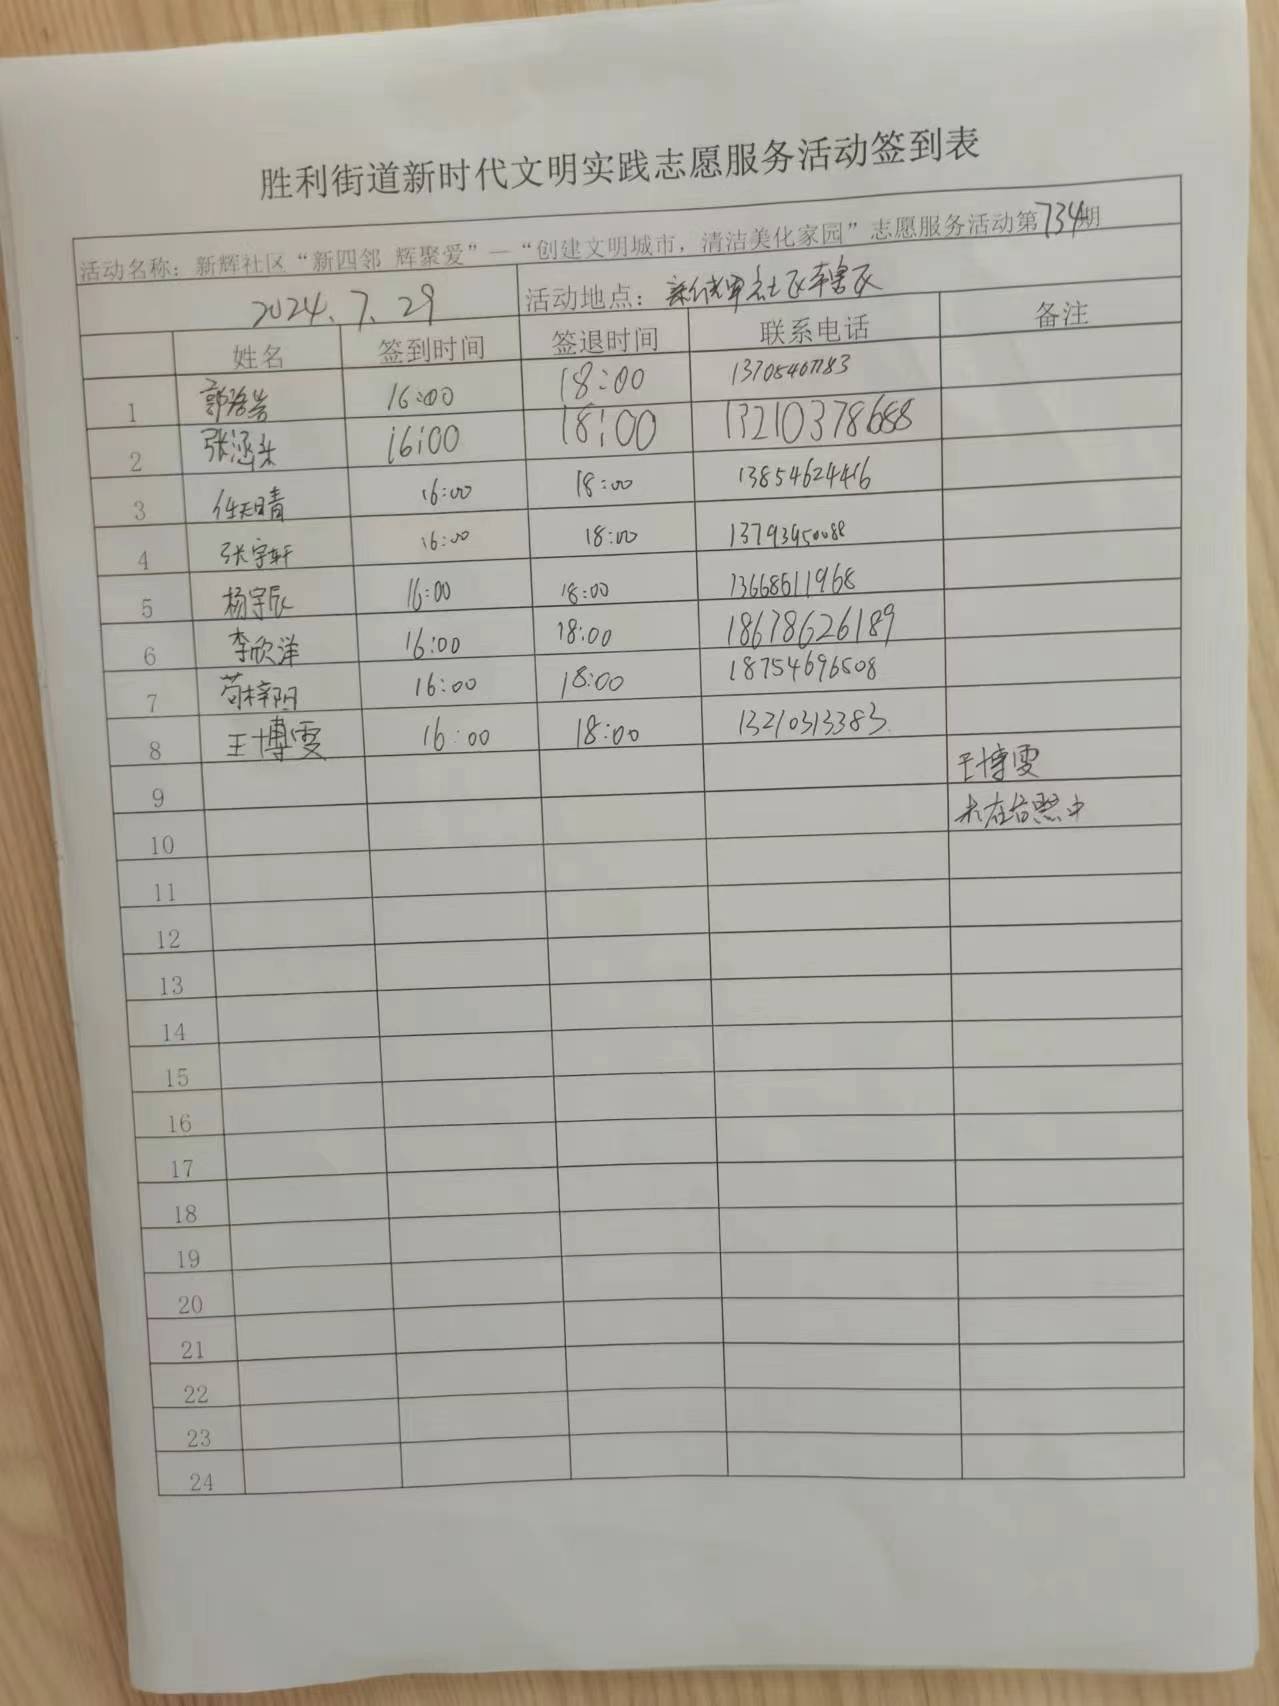 胜利街道新时代文明实践志愿服务活动签到表
活动名称：新辉社区“新四邻 辉聚爱”—“创建文明城市，清洁美化家园”志愿服务活动第734期
2024.7.29 活动地点：新辉社区辖区
姓名 签到时间 签退时间 联系电话 备注
1 16:00 18:00
2 张涵柒 16:00 18:00 13210378688
3 任天晴 16:00 18:00 13854624416
4 张宇轩 16:00 18:00 13793450088
5 杨宇辰 16:00 18:00 13668611968
6 李欣洋 16:00 18:00 18678626189
7 苟梓阳 16:00 18:00 18754696508
8 王博雯 16:00 18:00 13210313383
9 王博雯
10 未在合照中
11
12
13
14
15
16
17
18
19
20
21
22
23
24